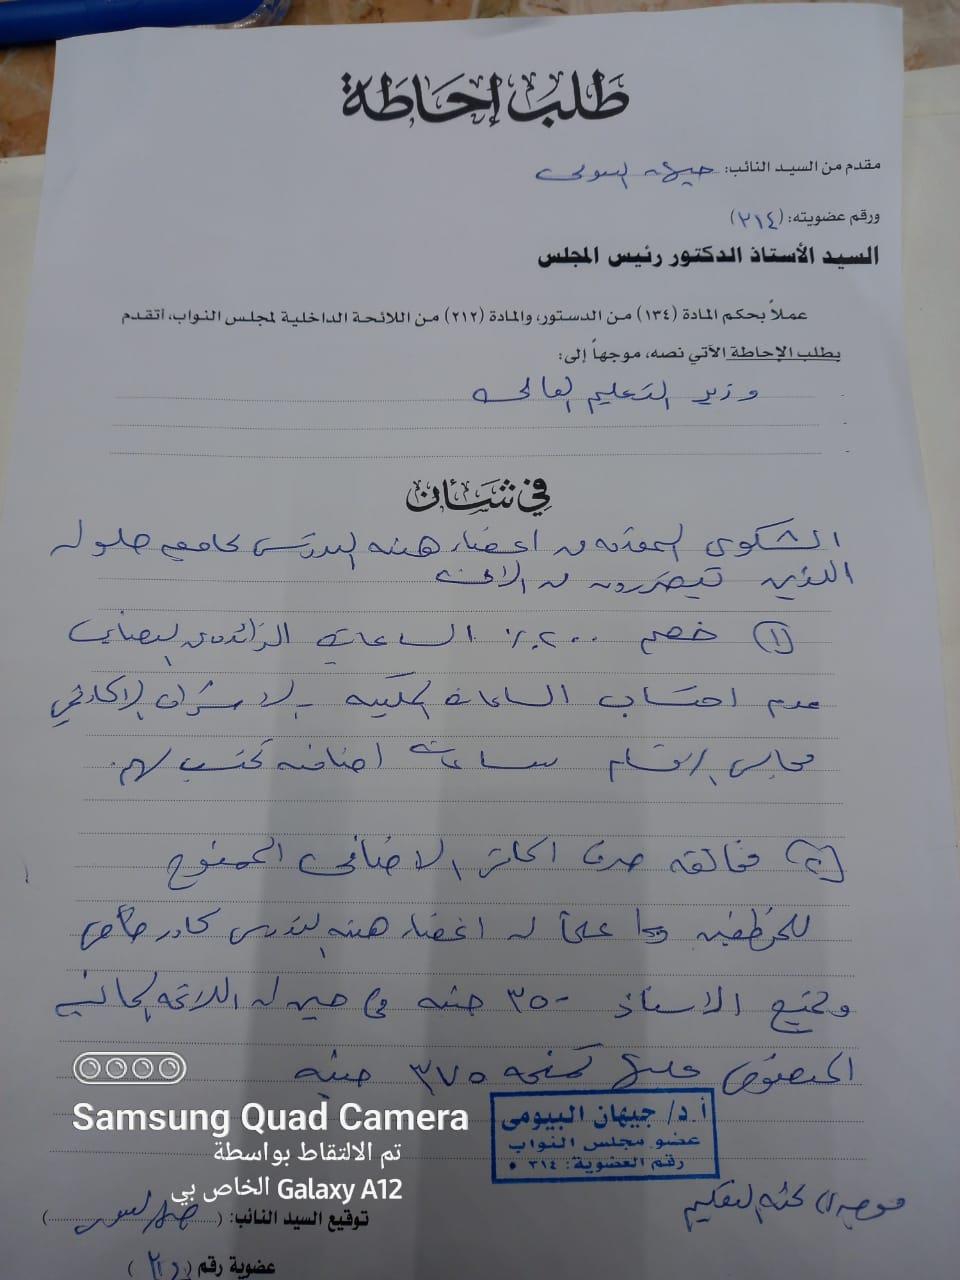 طلب إحاطة
مقدم من السيد النائب: جيهان البيومى
ورقم عضويته: (٣١٤)
السيد الأستاذ الدكتور رئيس المجلس
عملاً بحكم المادة (١٣٤) من الدستور، والمادة (٢١٢) من اللائحة الداخلية لمجلس النواب، أتقدم
بطلب الإحاطة الآتي نصه، موجهاً إلى:
وزير التعليم العالى
في شأن
الشكوى المقدمة من اعضاء هيئه التدريس بجامعه حلوان
الذين يتضررون من الاتى
(١) خصم ٢٠٠٪ الساعات الزائده من النصاب
عدم احتساب الساعات المكتبيه - الاشراف الاكاديمي
مجالس الاقسام ساعات اضافيه تحتسب لهم.
(٢) مخالفه صرف الحافز الاضافى الممنوح
للموظفين علما ان اعضاء هيئه التدريس كادر خاص
الاستاذ ٣٥٠ جنيه فى حين ان اللائحه
المنصوص عليها ٣٧٥ جنيه
أ.د/ جيهان البيومى
عضو مجلس النواب
رقم العضوية: ٣١٤
Samsung Quad Camera
تم الالتقاط بواسطة
Galaxy A12 الخاص بي
لجنه التعليم
توقيع السيد النائب: ( )
عضوية رقم ( )